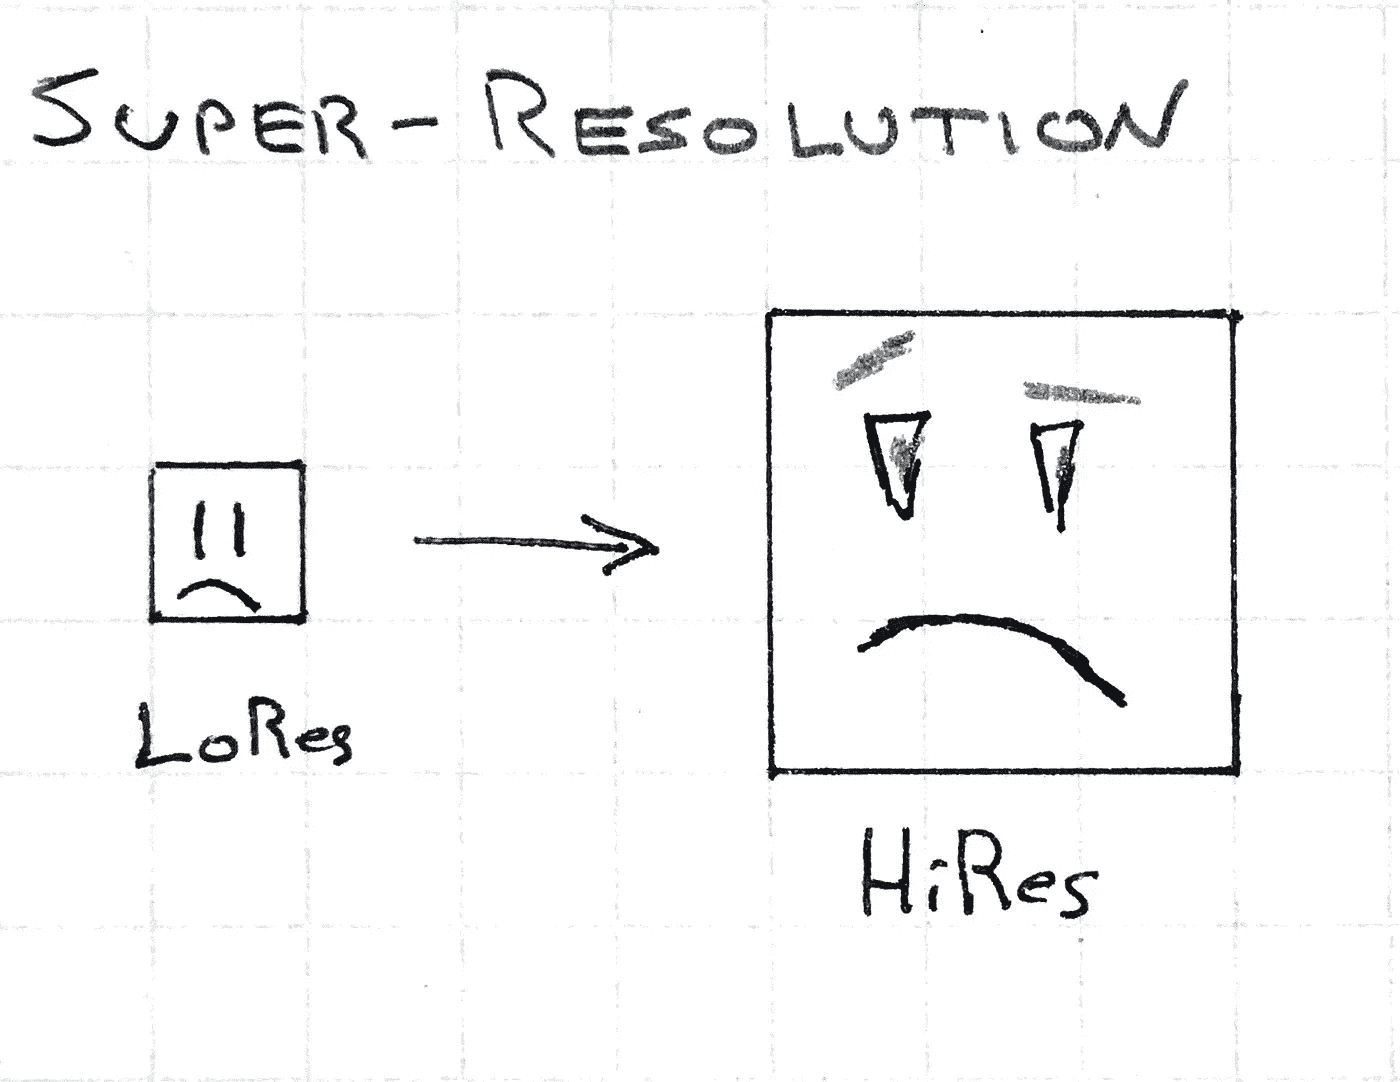 SUPER-RESOLUTION
LoRes
HiRes